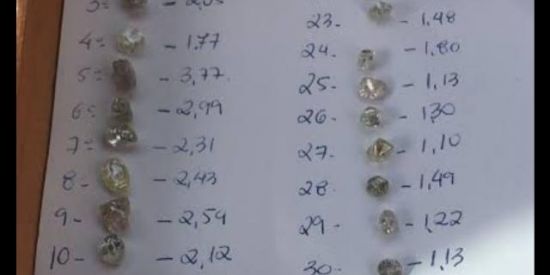 4= - 1,77
5= - 3,77.
6= - 2,99
7= - 2,31
8- - 2,43
9- - 2,54
10- - 2,12
23- - 1,48
24- - 1,80
25- - 1,13
26- - 1,30
27- - 1,10
28- - 1,49
29- - 1,22
30- - 1,13